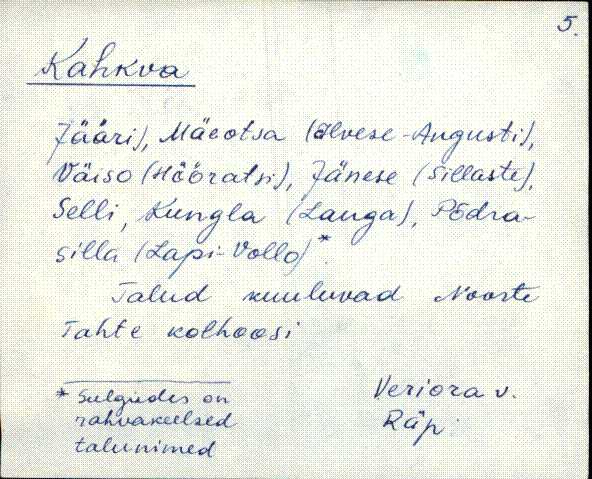 5.
Kahkva
Jääri), Mäeotsa (Ilvese-Augusti),
Väiso (Hööratsi), Jänese (Sillaste),
Selli, Kungla (Lauga), Põdra-
silla (Lapi-Vollo)*.
Talud kuuluvad Noorte
Tahte kolhoosi
* Sulgudes on
rahvakeelsed
talunimed
Veriora v.
Räp.